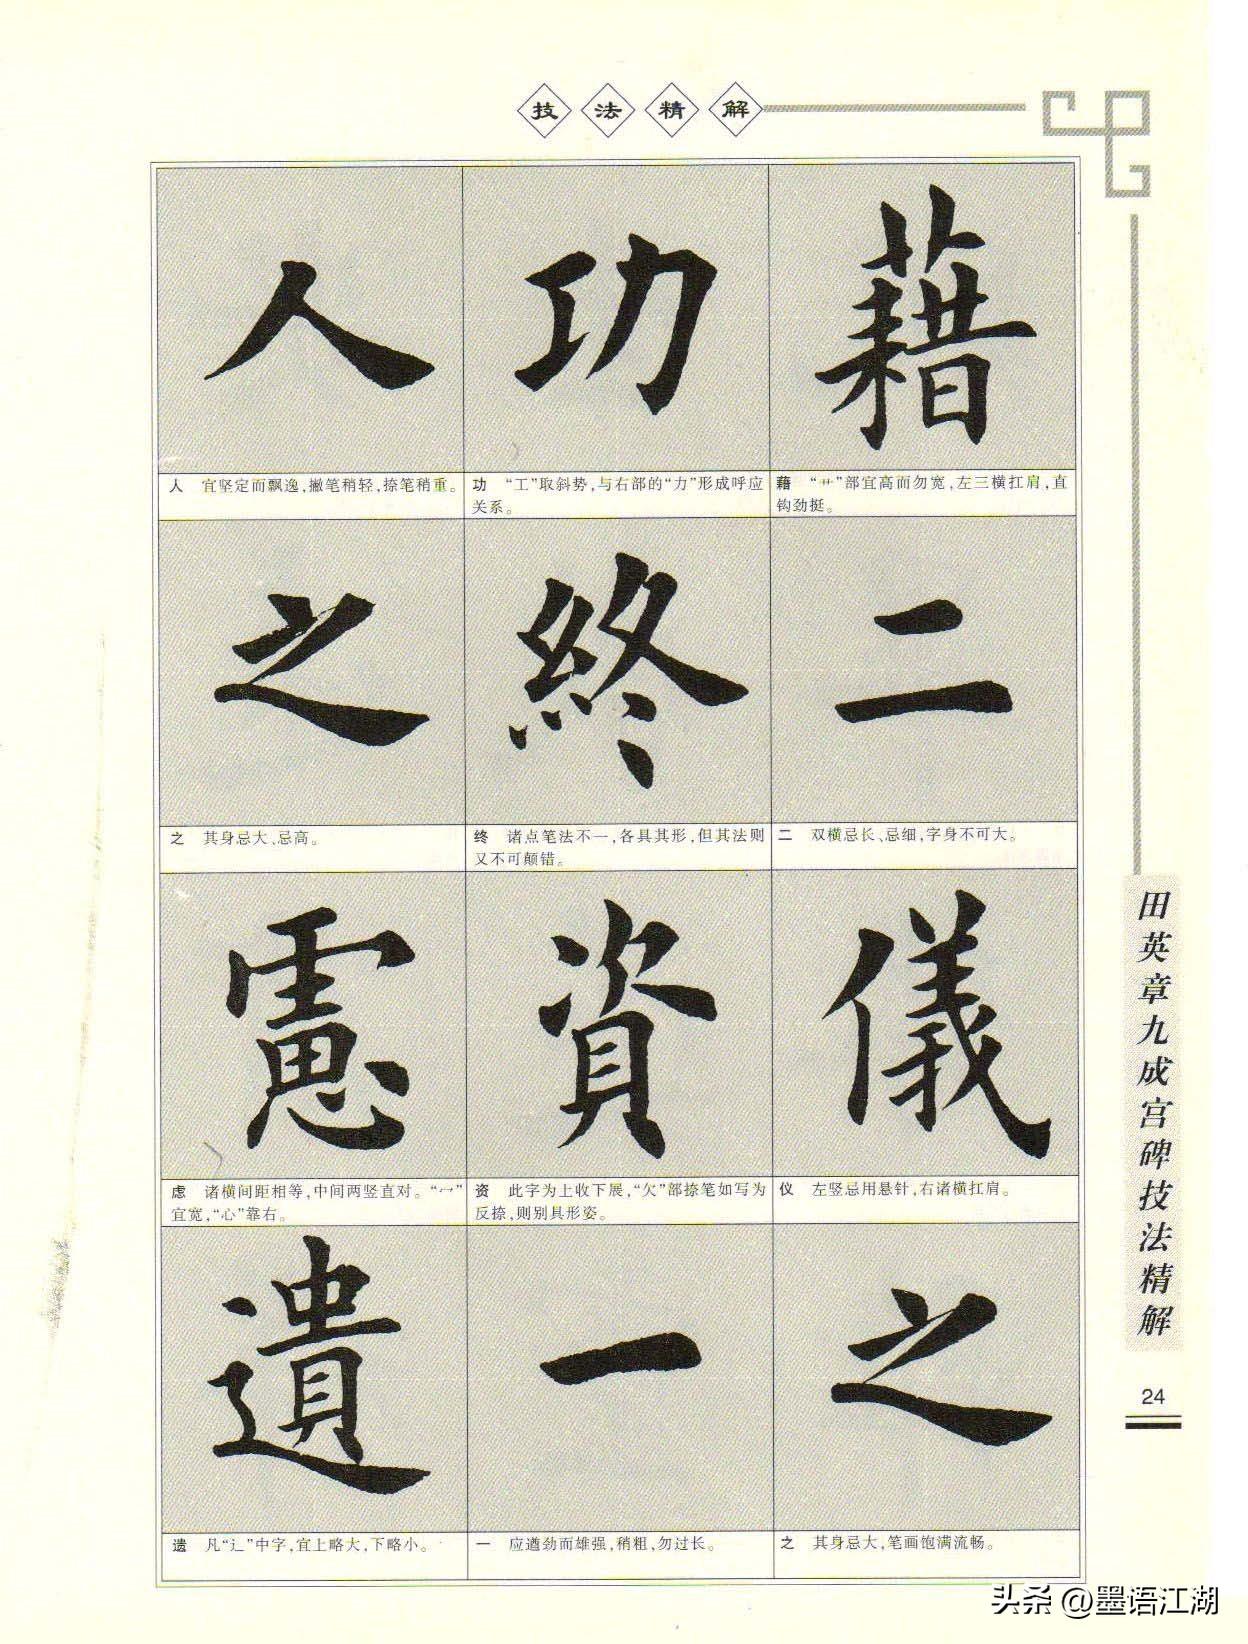 技法精解
人 功 藉
人 宜坚定而飘逸,撇笔稍轻,捺笔稍重。
功 “工”取斜势,与右部的“力”形成呼应
关系。
藉 “艹”部宜高而勿宽,左三横扛肩,直
钩劲挺。
之 終 二
之 其身忌大、忌高。
终 诸点笔法不一,各具其形,但其法则
又不可颠错。
二 双横忌长、忌细,字身不可大。
慮 資 儀
虑 诸横间距相等,中间两竖直对。“冖”
宜宽,“心”靠右。
资 此字为上收下展,“欠”部捺笔如写为
反捺,则别具形姿。
仪 左竖忌用悬针,右诸横扛肩。
遺 一 之
遗 凡“辶”中字,宜上略大,下略小。
一 应遒劲而雄强,稍粗,勿过长。
之 其身忌大,笔画饱满流畅。
田英章九成宫碑技法精解
24
头条 @墨语江湖